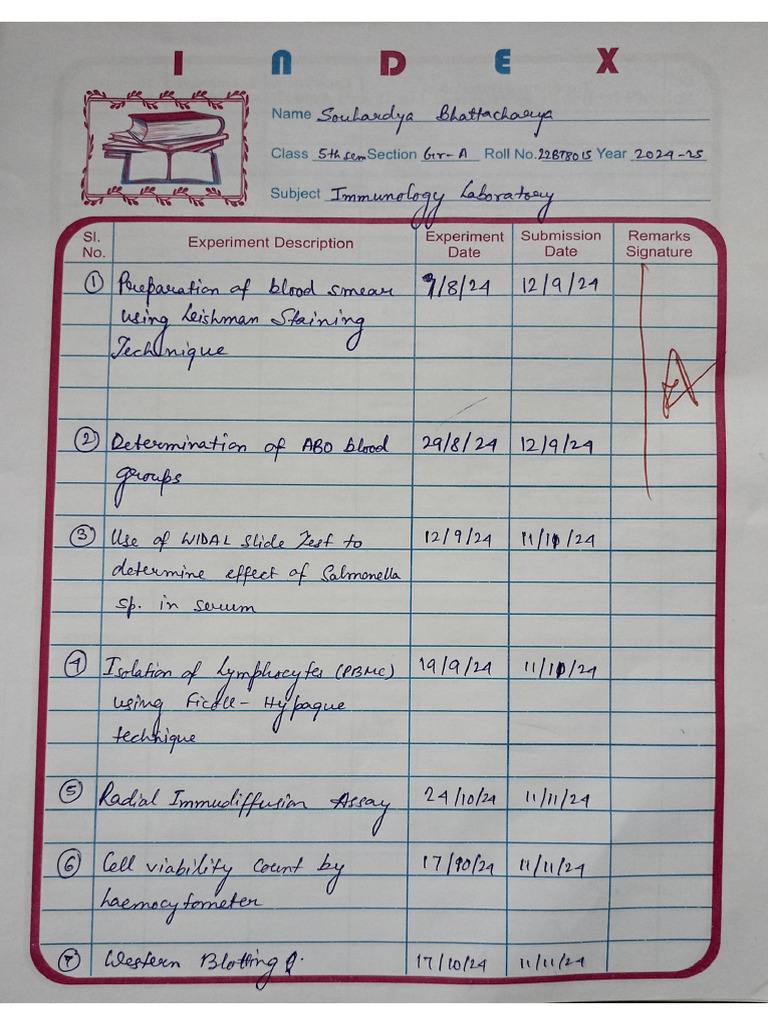 INDEX
Name Souhardya Bhattacharya
Class 5th sem Section Gr-A Roll No. 22BT8015 Year 2024-25
Subject Immunology Laboratory
Sl. No. Experiment Description Experiment Date Submission Date Remarks Signature
1 Preparation of blood smear 9/8/24 12/9/24
using Leishman Staining
Technique
2 Determination of ABO blood 29/8/24 12/9/24
groups
3 Use of WIDAL slide Test to 12/9/24 11/11/24
determine effect of Salmonella
sp. in serum
4 Isolation of Lymphocytes (PBMC) 19/9/24 11/11/24
using Ficoll-Hypaque
technique
5 Radial Immudiffusion Assay 24/10/24 11/11/24
6 Cell viability count by 17/10/24 11/11/24
haemocytometer
7 Western Blotting 17/10/24 11/11/24